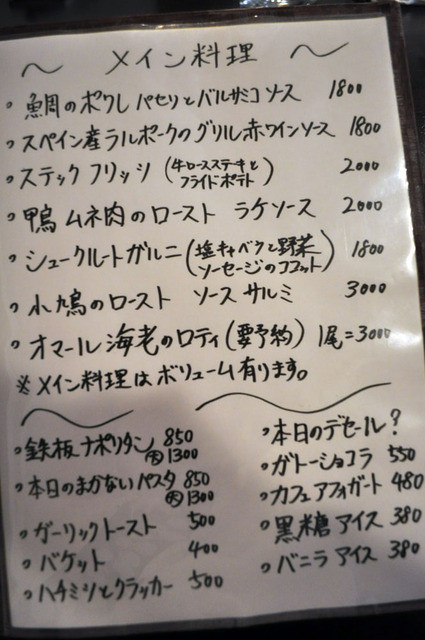 〜 メイン料理 〜
・鯛のポワレ パセリとバルサミコソース 1800
・スペイン産ラルポークのグリル赤ワインソース 1800
・ステック フリッツ (牛ロースステーキとフライドポテト) 2000
・鴨ムネ肉のロースト ラケソース 2000
・シュークルートガルニ (塩キャベツと野菜ソーセージのココット) 1800
・小鳩のロースト ソース サルミ 3000
・オマール海老のロティ (要予約) 1尾=3000
※メイン料理はボリューム有ります。
・鉄板ナポリタン 850
大1300
・本日のまかないパスタ 850
大1300
・ガーリックトースト 500
・バケット 400
・ハチミツとクラッカー 500
・本日のデセール?
・ガトーショコラ 550
・カフェアフォガート 480
・黒糖アイス 380
・バニラアイス 380